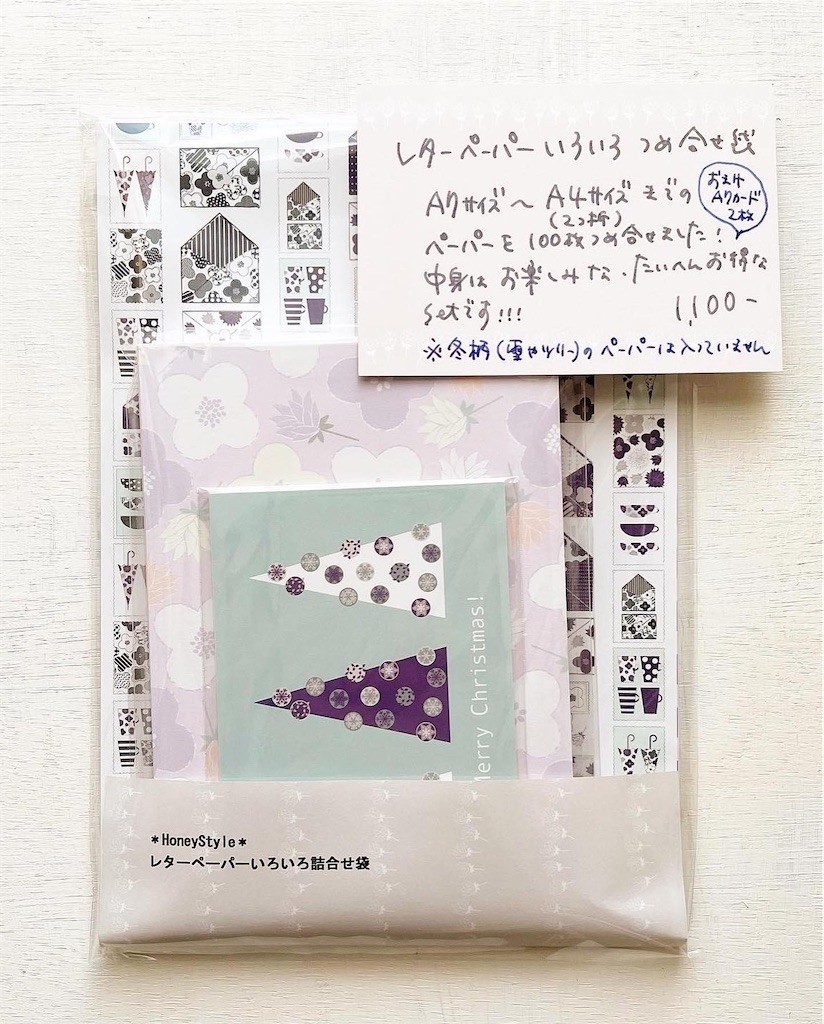 レターペーパーいろいろ つめ合せ袋
A7サイズ～A4サイズまでの
(2つ折)
おまけ
A7カード
2枚
ペーパーを100枚つめ合せました!
中身はお楽しみな、たいへんお得な
setです!!!
1,100-
※冬柄(雪やツリー)のペーパーは入っていません
Merry Christmas!
*HoneyStyle*
レターペーパーいろいろ詰合せ袋